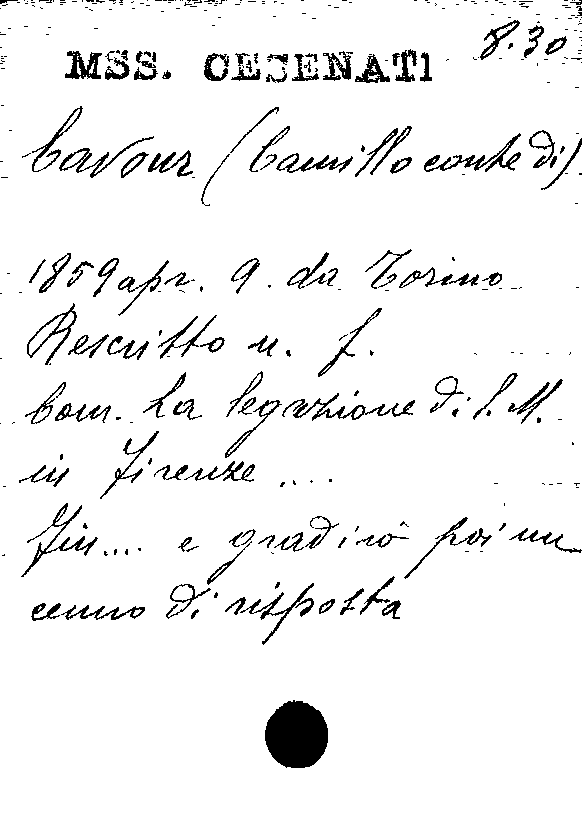 8.30
MSS. CESENATI
Cavour (Camillo conte di)
1859 apr. 9. da Torino
Rescritto n. f.
Com. La legazione di S. M.
in Firenze ....
Fin.... e gradirò poi un
cenno di risposta